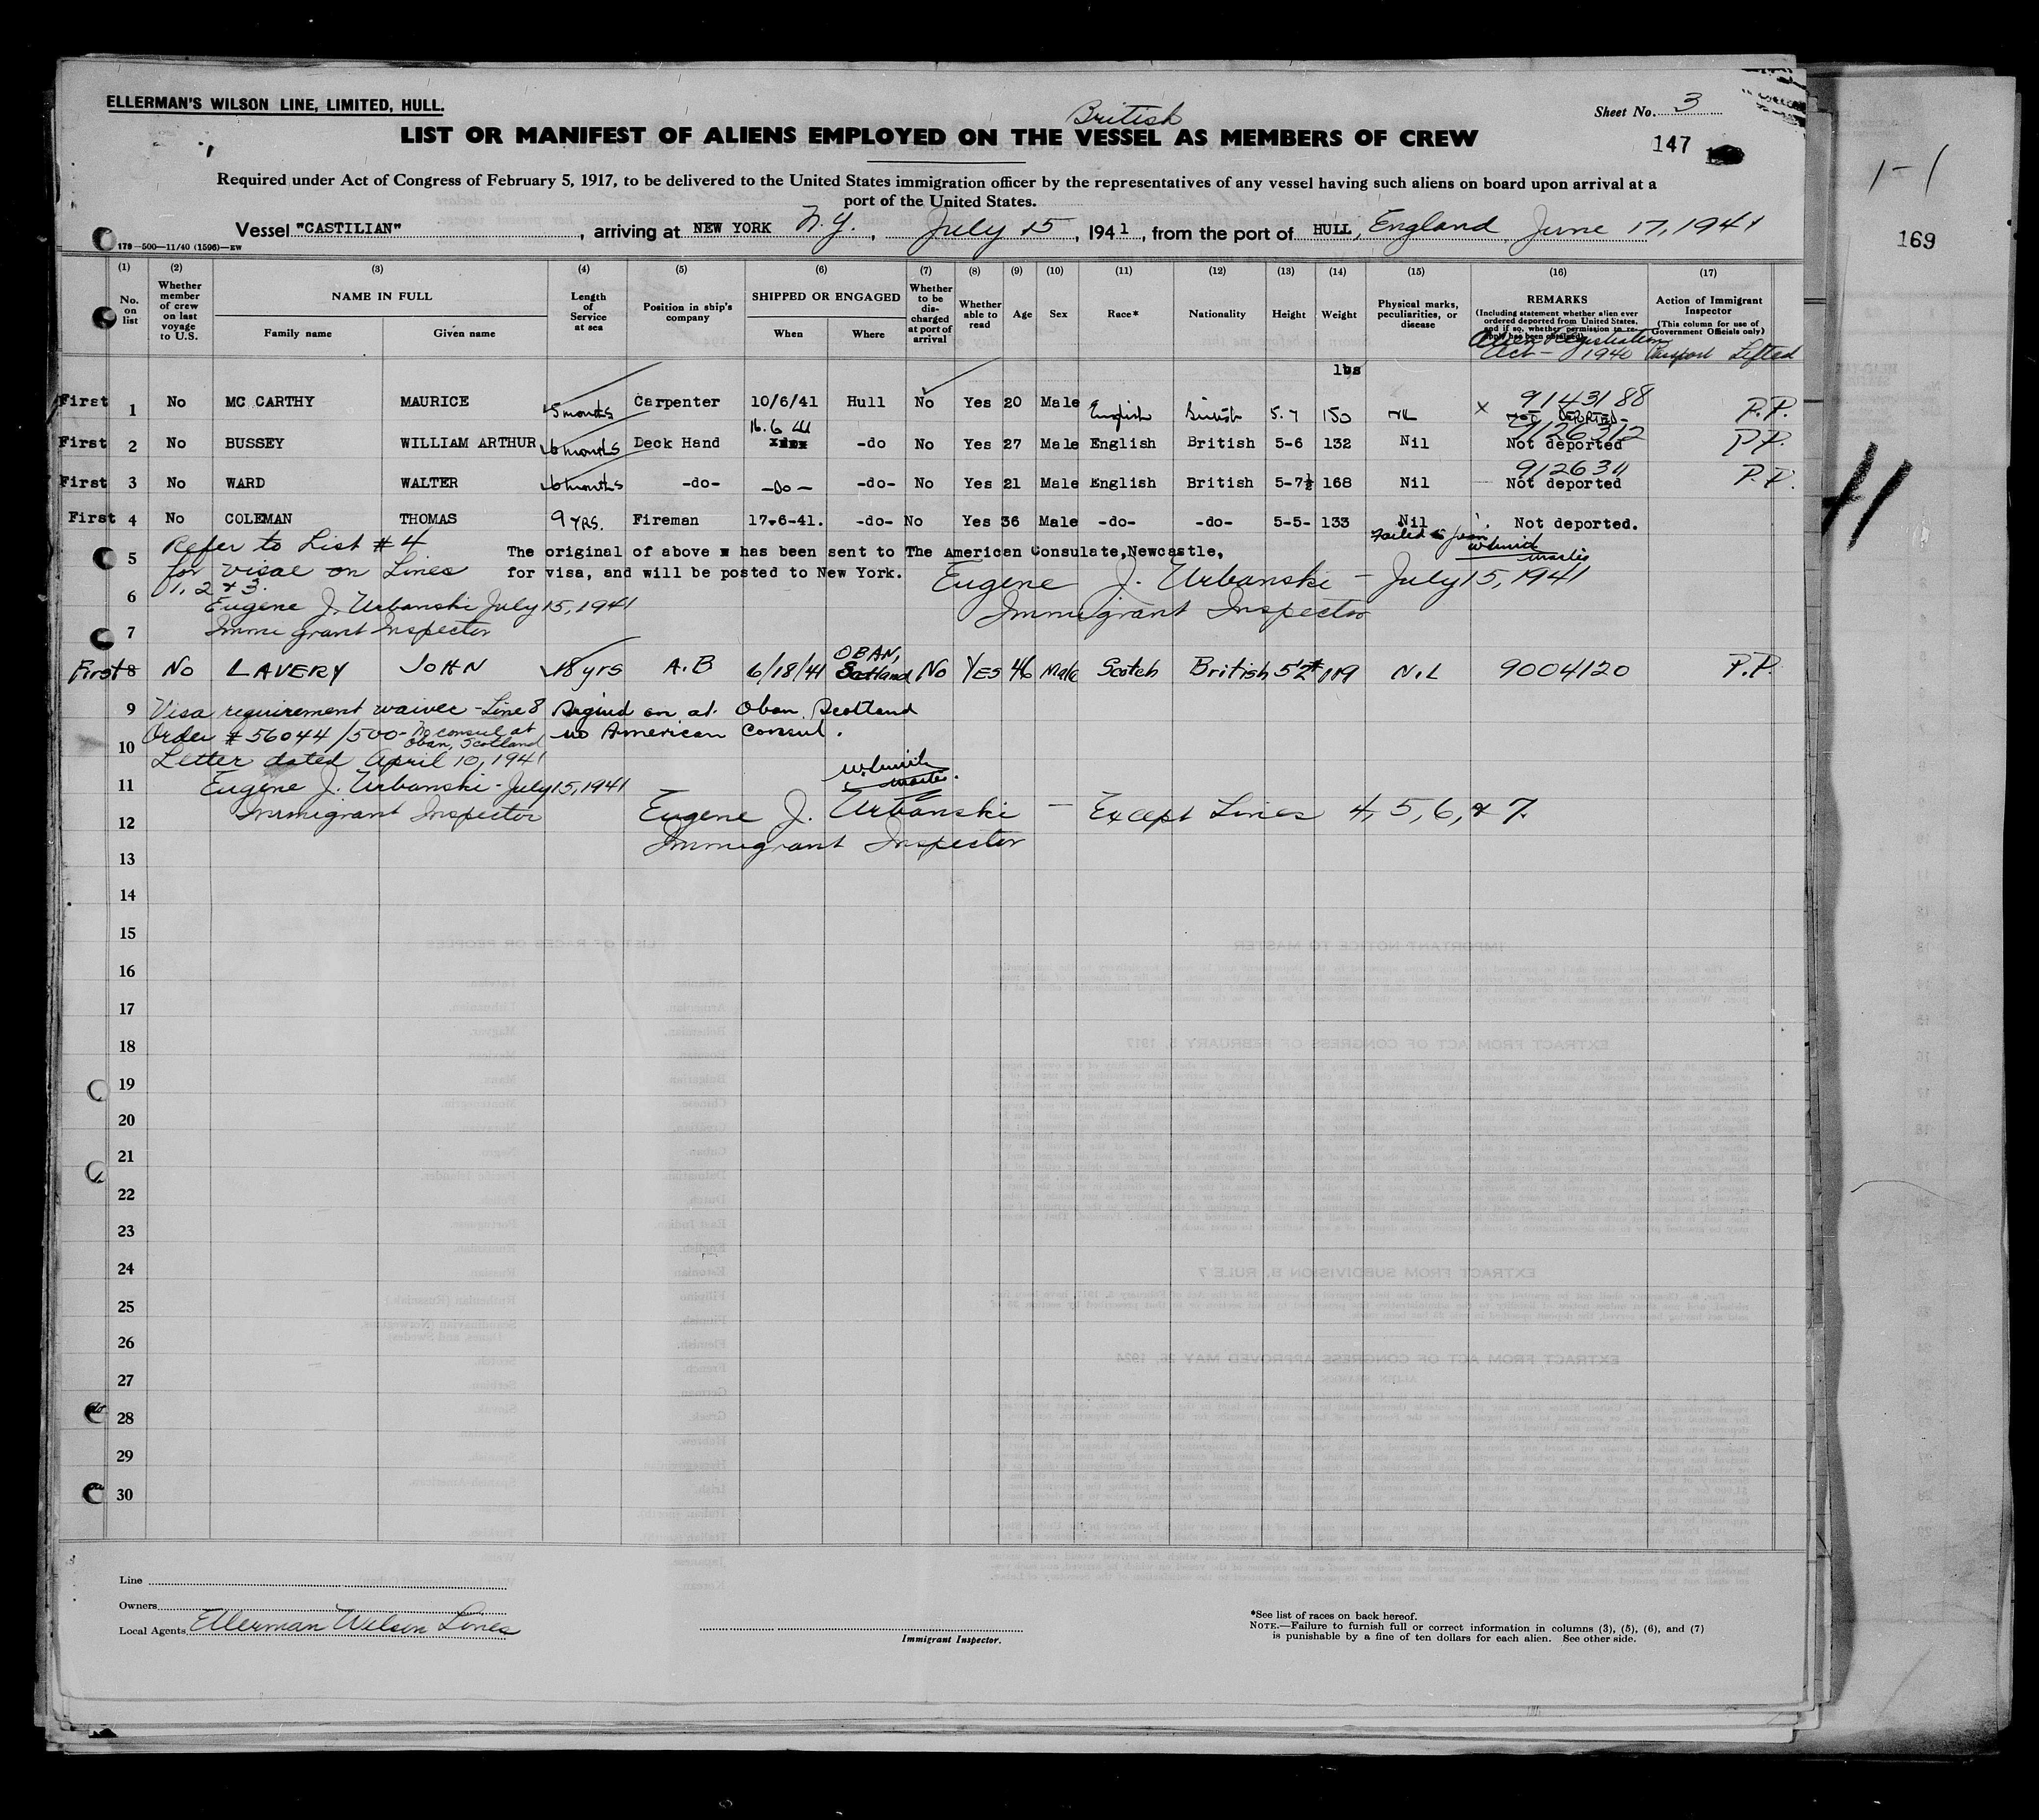 ELLERMAN'S WILSON LINE, LIMITED, HULL.
Sheet No. 3
British
LIST OR MANIFEST OF ALIENS EMPLOYED ON THE VESSEL AS MEMBERS OF CREW
147
1-1
169
Required under Act of Congress of February 5, 1917, to be delivered to the United States immigration officer by the representatives of any vessel having such aliens on board upon arrival at a
port of the United States.
Vessel "CASTILIAN", arriving at NEW YORK N.Y., July 15, 1941, from the port of HULL, England June 17, 1941
179-500-11/40 (1596)-EW
(1) (2) (3) (4) (5) (6) (7) (8) (9) (10) (11) (12) (13) (14) (15) (16) (17)
No. on list
Whether member of crew on last voyage to U.S.
NAME IN FULL
Family name
Given name
Length of Service at sea
Position in ship's company
SHIPPED OR ENGAGED
When
Where
Whether to be discharged at port of arrival
Whether able to read
Age
Sex
Race*
Nationality
Height
Weight
Physical marks, peculiarities, or disease
REMARKS
(Including statement whether alien ever ordered deported from United States, and if so, whether permission to re-apply has been obtained)
Action of Immigrant Inspector
(This column for use of Government Officials only)
Alien Registration
Act - 1940 Passport Lifted
lbs
First 1 No MC CARTHY MAURICE 5 months Carpenter 10/6/41 Hull No Yes 20 Male English British 5.7 150 NIL X 9143188 P.P.
NOT DEPORTED-
16.6.41
First 2 No BUSSEY WILLIAM ARTHUR 6 months Deck Hand -do No Yes 27 Male English British 5-6 132 Nil 9126312 Not deported P.P.
First 3 No WARD WALTER 6 months -do- -Do- -do- No Yes 21 Male English British 5-7½ 168 Nil 912631 Not deported P.P.
First 4 No COLEMAN THOMAS 9 YRS. Fireman 17-6-41. -do- No Yes 36 Male -do- -do- 5-5- 133 Nil Not deported.
Failed to join
Master
5 Refer to List #4
for visae on Lines
1, 2 & 3.
The original of above has been sent to The American Consulate,Newcastle,
for visa, and will be posted to New York.
Eugene J. Urbanski - July 15, 1941
Immigrant Inspector
6 Eugene J. Urbanski July 15, 1941
7 Immigrant Inspector
First 8 No LAVERY JOHN 18 yrs A.B 6/18/41 OBAN, Scotland No YES 46 Male Scotch British 5'2" 119 NIL 9004120 P.P.
9 Visa requirement waived - Line 8 Signed on at Oban Scotland
Order #56044/500- No consul at Oban, Scotland no American Consul.
10 Letter dated April 10, 1941
11 Eugene J. Urbanski - July 15, 1941
Master.
12 Immigrant Inspector
Eugene J. Urbanski - Except Lines 4, 5, 6, & 7.
Immigrant Inspector
13
14
15
16
17
18
19
20
21
22
23
24
25
26
27
28
29
30
Line
Owners
Local Agents Ellerman Wilson Lines
Immigrant Inspector.
*See list of races on back hereof.
NOTE.—Failure to furnish full or correct information in columns (3), (5), (6), and (7)
is punishable by a fine of ten dollars for each alien. See other side.